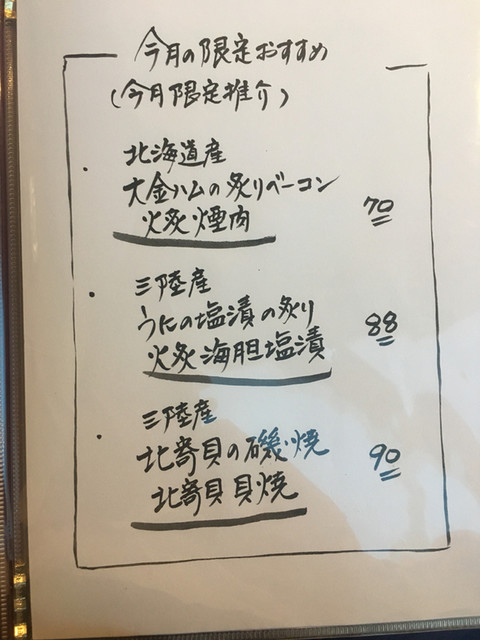 今月の限定おすすめ
(今月限定推介)
北海道産
大金ハムの炙りベーコン
火炙煙肉
70
三陸産
うにの塩漬の炙り
火炙海胆塩漬
88
三陸産
北寄貝の磯焼
北寄貝貝焼
90